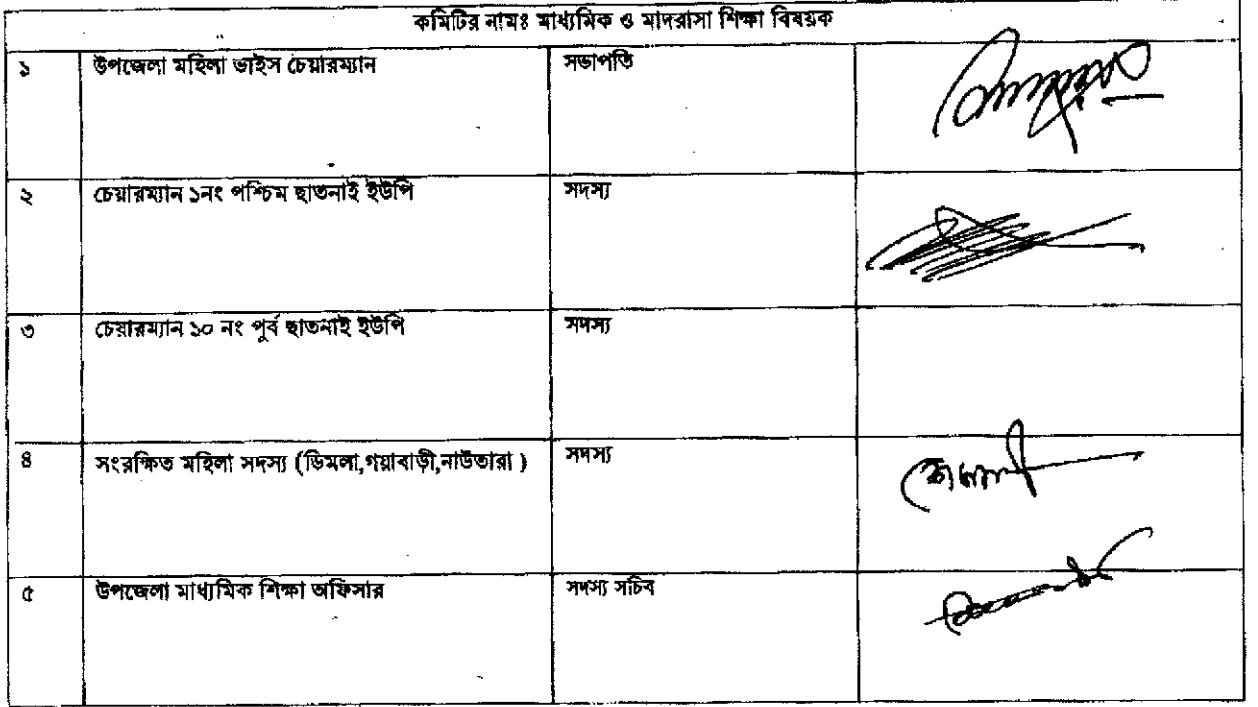 কমিটির নামঃ মাধ্যমিক ও মাদরাসা শিক্ষা বিষয়ক
১ উপজেলা মহিলা ভাইস চেয়ারম্যান সভাপতি
২ চেয়ারম্যান ১নং পশ্চিম ছাতনাই ইউপি সদস্য
৩ চেয়ারম্যান ১০ নং পূর্ব ছাতনাই ইউপি সদস্য
৪ সংরক্ষিত মহিলা সদস্য (ডিমলা,গয়াবাড়ী,নাউতারা ) সদস্য
৫ উপজেলা মাধ্যমিক শিক্ষা অফিসার সদস্য সচিব